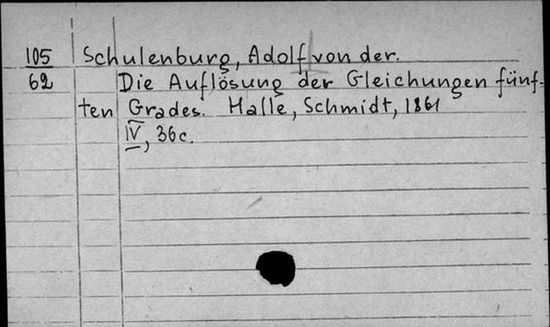 105 Schulenburg, Adolf von der.
62 Die Auflösung der Gleichungen fünf-
ten Grades. Halle, Schmidt, 1861
IV, 36c.